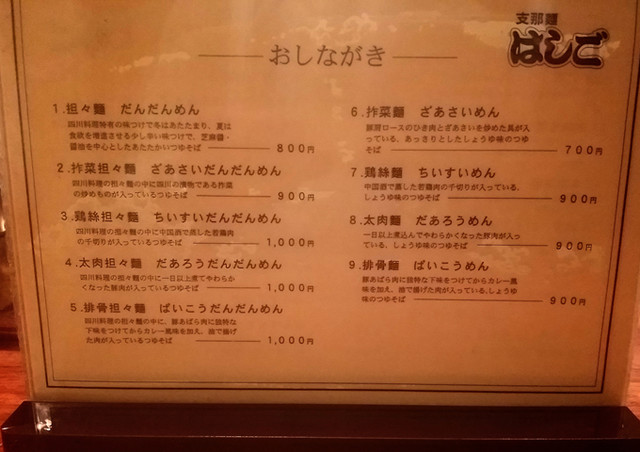 支那麺
はしご
おしながき
1.担々麺 だんだんめん
四川料理特有の味つけで冬はあたたまり、夏は
食欲を増進させる少し辛い味つけで、芝麻醤・
醤油を中心としたあたたかいつゆそば 800円
2.搾菜担々麺 ざあさいだんだんめん
四川料理の担々麺の中に四川の漬物である搾菜
の炒めものが入っているつゆそば 900円
3.鶏絲担々麺 ちいすいだんだんめん
四川料理の担々麺の中に中国酒で蒸した若鶏肉
の千切りが入っているつゆそば 1,000円
4.太肉担々麺 だあろうだんだんめん
四川料理の担々麺の中に一日以上煮てやわらか
くなった豚肉が入っているつゆそば 1,000円
5.排骨担々麺 ぱいこうだんだんめん
四川料理の担々麺の中に、豚あばら肉に独特な
下味をつけてからカレー風味を加え、油で揚げ
た肉が入っているつゆそば 1,000円
6.搾菜麺 ざあさいめん
豚肩ロースのひき肉とざあさいを炒めた具が入
っている、あっさりとしたしょうゆ味のつゆ
そば 700円
7.鶏絲麺 ちいすいめん
中国酒で蒸した若鶏肉の千切りが入っている、
しょうゆ味のつゆそば 900円
8.太肉麺 だあろうめん
一日以上煮込んでやわらかくなった豚肉が入っ
ている、しょうゆ味のつゆそば 900円
9.排骨麺 ぱいこうめん
豚あばら肉に独特な下味をつけてからカレー風
味を加え、油で揚げた肉が入っている、しょうゆ
味のつゆそば 900円